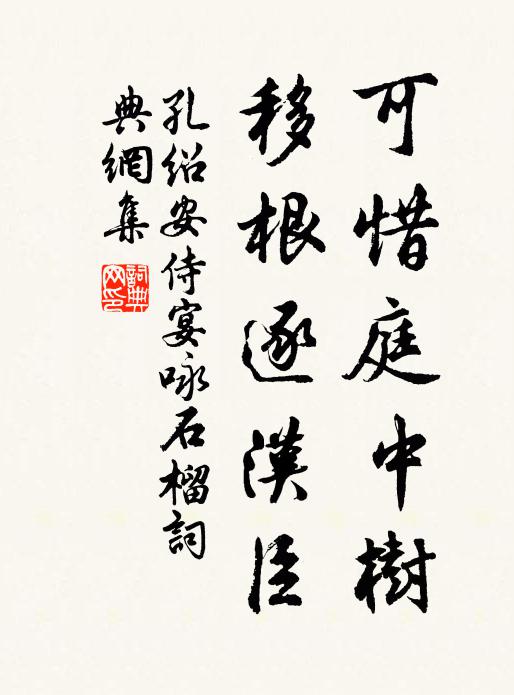 可惜庭中樹
移根逐漢臣
孔紹安侍宴咏石榴詞
典網集
詞典網印